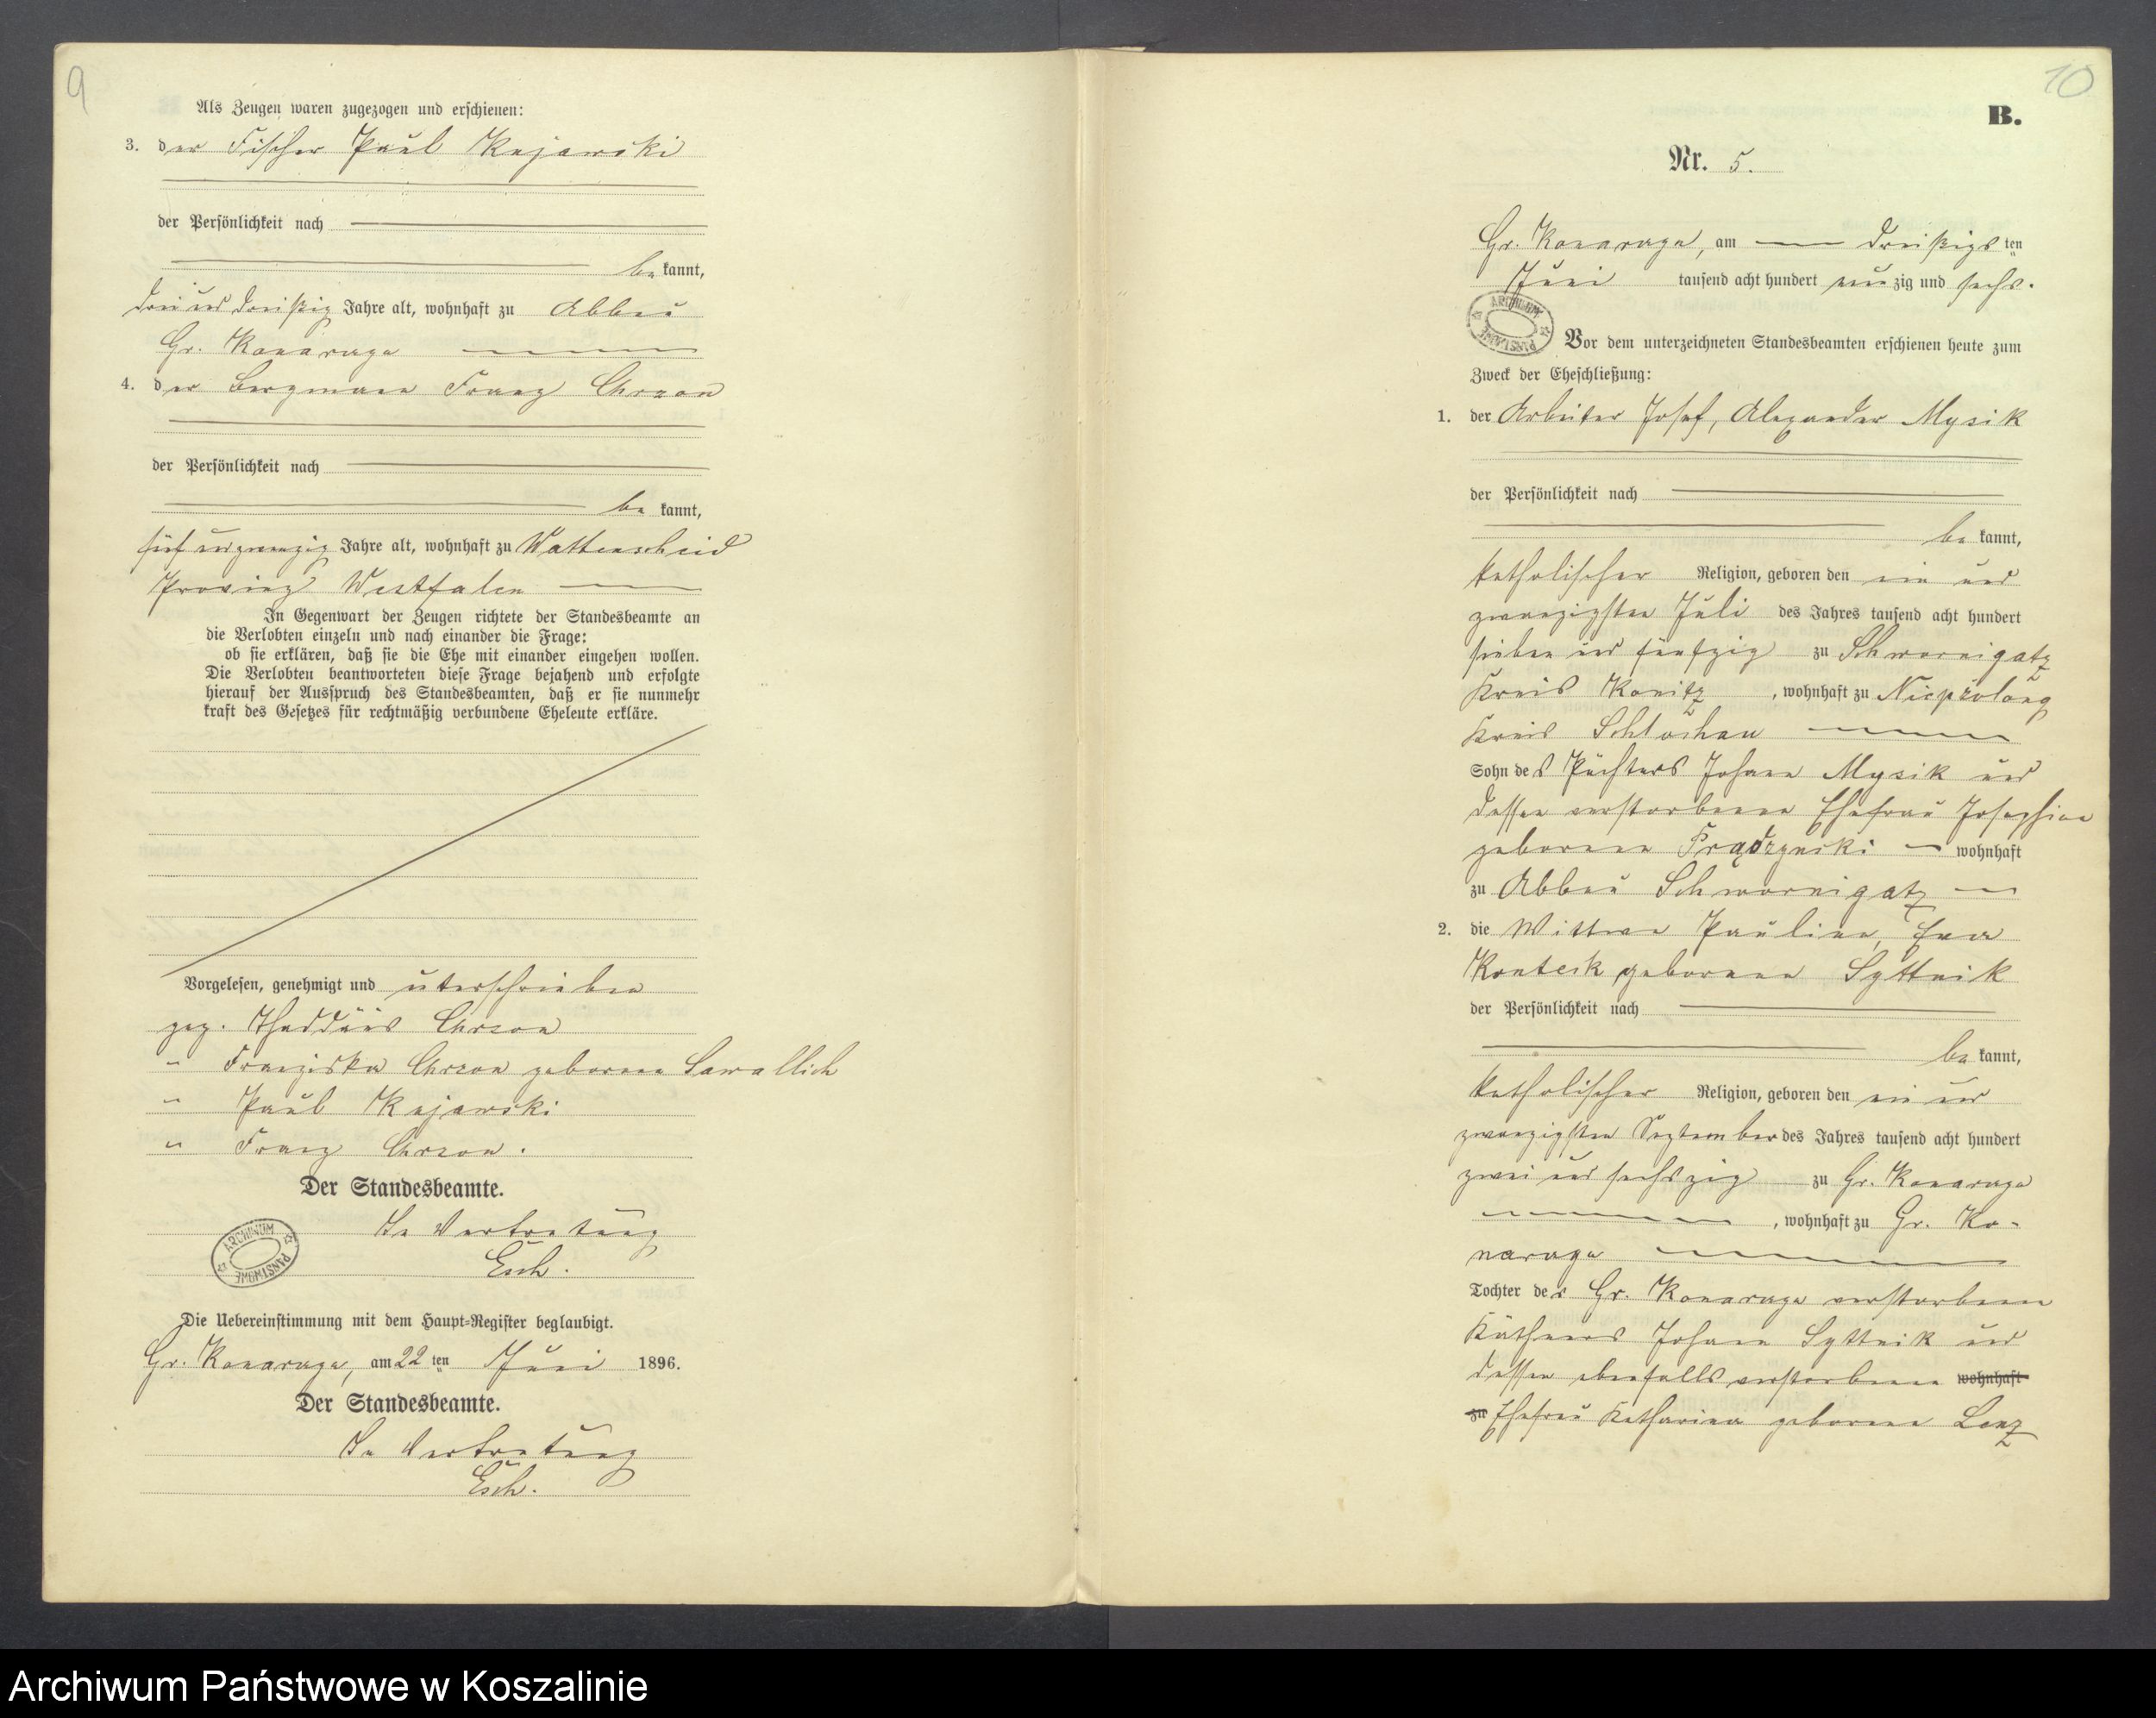 9
Als Zeugen waren zugezogen und erschienen:
3. der Fischer Paul Kujawski
der Persönlichkeit nach
be kannt,
drei und dreißig Jahre alt, wohnhaft zu Abbau
Gr. Konarczyn
4. der Bergmann Franz Chrzon
der Persönlichkeit nach
be kannt,
fünf und zwanzig Jahre alt, wohnhaft zu Wattenscheid
Provinz Westfalen
In Gegenwart der Zeugen richtete der Standesbeamte an
die Verlobten einzeln und nach einander die Frage:
ob sie erklären, daß sie die Ehe mit einander eingehen wollen.
Die Verlobten beantworteten diese Frage bejahend und erfolgte
hierauf der Ausspruch des Standesbeamten, daß er sie nunmehr
kraft des Gesetzes für rechtmäßig verbundene Eheleute erkläre.
Vorgelesen, genehmigt und unterschrieben
gez. Thaddäus Chrzon
" Franziska Chrzon geborene Sawallich
" Paul Kujawski
" Franz Chrzon.
Der Standesbeamte.
In Vertretung
Esch.
ARCHIWUM PAŃSTWOWE
Die Uebereinstimmung mit dem Haupt-Register beglaubigt.
am 22 ten Juni 1896.
Der Standesbeamte.
In Vertretung
Esch.
10
B.
Nr. 5.
am dreißigs ten
Juni tausend acht hundert neun zig und sechs.
ARCHIWUM PAŃSTWOWE
Vor dem unterzeichneten Standesbeamten erschienen heute zum
Zweck der Eheschließung:
1. der Arbeiter Josef, Alexander Mysik
der Persönlichkeit nach
be kannt,
katholischer Religion, geboren den ein und
zwanzigsten Juli des Jahres tausend acht hundert
sieben und fünfzig zu Schwornigatz
Kreis Konitz, wohnhaft zu
Kreis Schlochau
Sohn des Pächters Johann Mysik und
dessen verstorbenen Ehefrau Josephine
geborene Prądzynski wohnhaft
zu Abbau Schwornigatz
2. die Wittwe Pauline, Eva
geborene Syttnik
der Persönlichkeit nach
be kannt,
katholischer Religion, geboren den ein und
zwanzigsten September des Jahres tausend acht hundert
zwei und sechszig zu Gr.
, wohnhaft zu Gr. Ko-
Tochter des Gr. verstorbenen
Käthners Johann Syttnik und
dessen ebenfalls verstorbenen wohnhaft
zu Ehefrau Katharina geborene Lenz
Archiwum Państwowe w Koszalinie